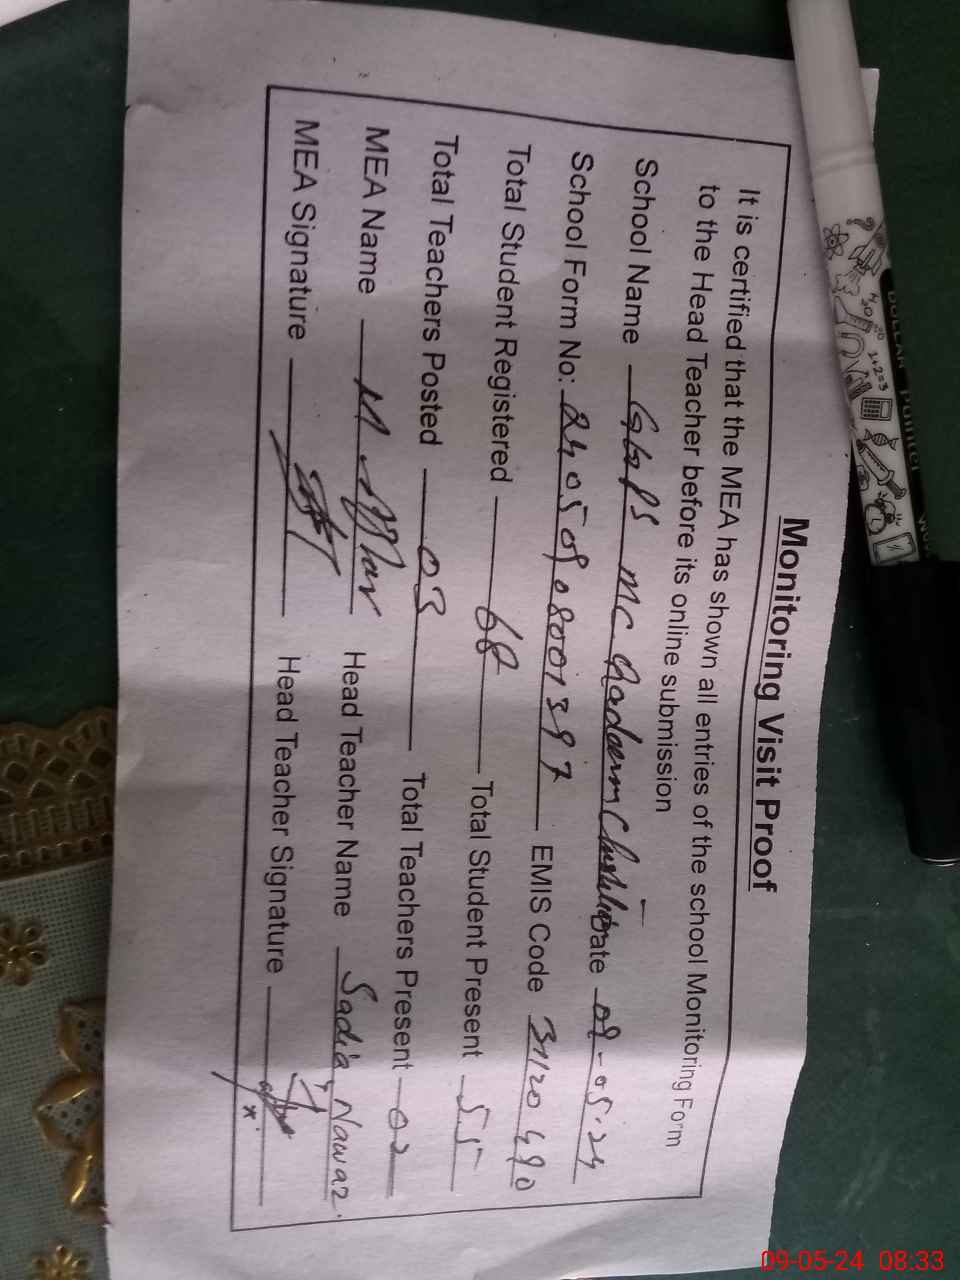 Monitoring Visit Proof
It is certified that the MEA has shown all entries of the school Monitoring Form
to the Head Teacher before its online submission
School Name GGPS MC Date 09-05-24
School Form No: 24050908001397 EMIS Code 31120490
Total Student Registered 68 Total Student Present 55
Total Teachers Posted 03 Total Teachers Present 02
MEA Name M Head Teacher Name Sadia Nawaz
MEA Signature Head Teacher Signature
DOLLAR Pointer
1+2=3
09-05-24 08:33